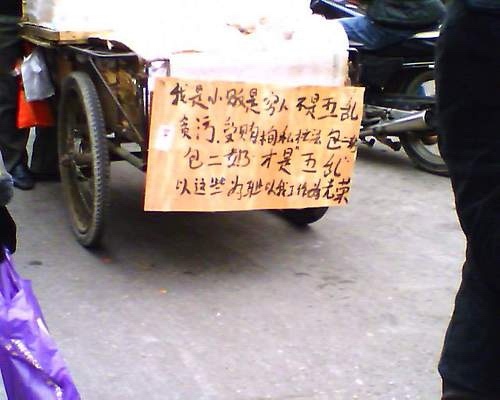 我是小贩是穷人不是五乱
贪污.受贿徇私枉法包一
包二奶才是"五乱"
以这些为耻以我工作为光荣